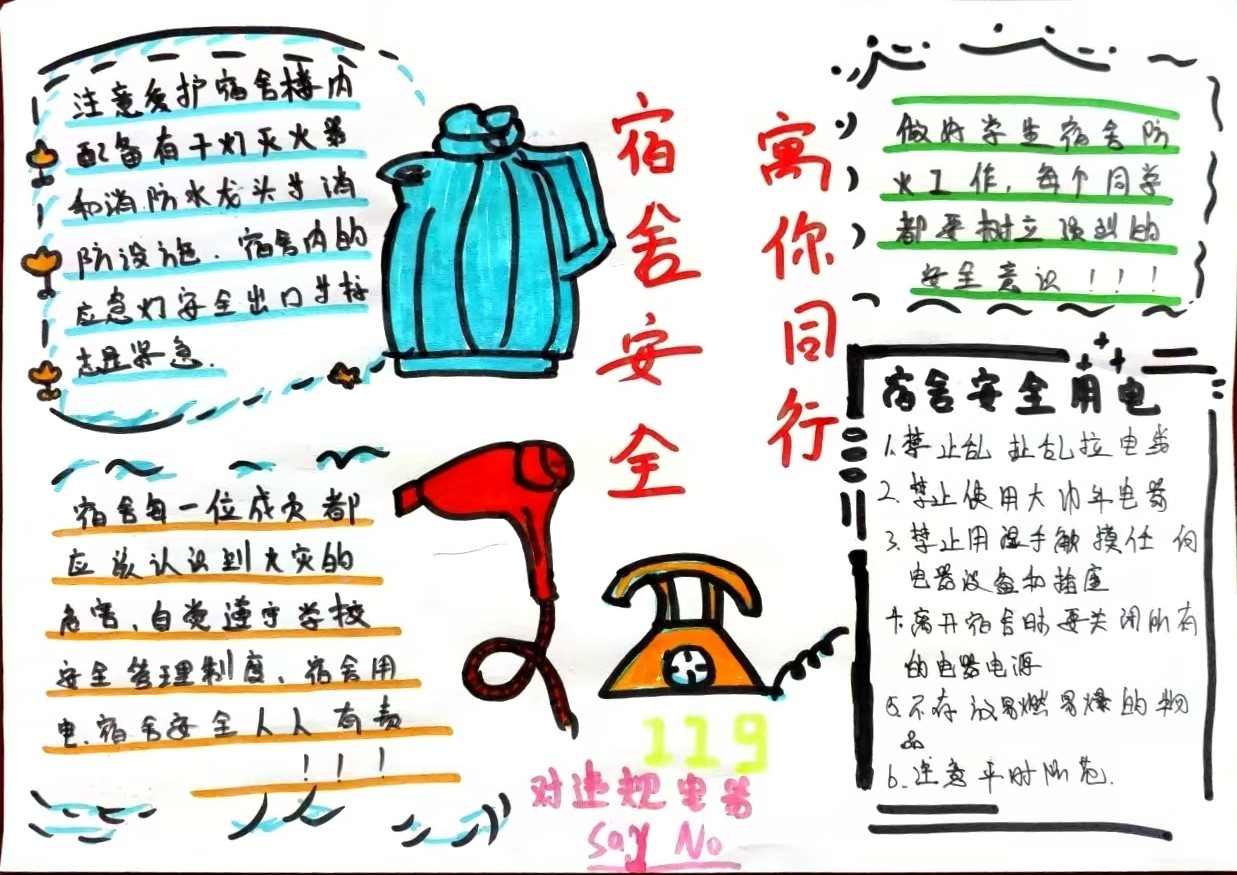 注意爱护宿舍楼内
配备有干灯灭火器
和消防水龙头与消
防设施. 宿舍内的
应急灯安全出口与标
志是紧急.
宿舍安全
寓你同行
做好学生宿舍防
火工作, 每个同学
都要树立强烈的
安全意识!!!
宿舍每一位成员都
应该认识到火灾的
危害、自觉遵守学校
安全管理制度、宿舍用
电.宿舍安全人人有责
!!!
119
对违规电器
say No
宿舍安全用电
1.禁止乱扯乱拉电线
2.禁止使用大功率电器
3.禁止用湿手触摸任何
电器设备和插座
4.离开宿舍时要关闭所有
的电器电源
5.不存放易燃易爆的物
品
6.注意平时防范.